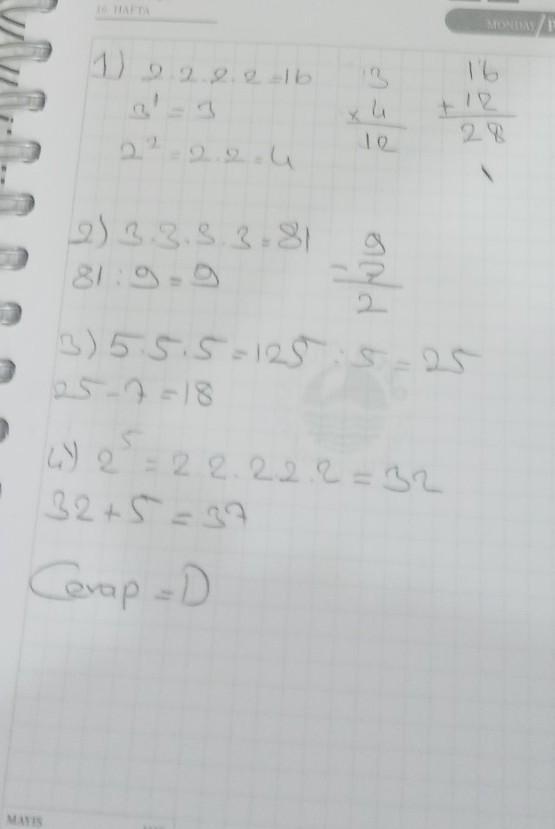 16. HAFTA
MONDAY/P
1) 2.2.2.2=16
3¹ = 3
2² = 2.2=4
3
x 4
12
16
+ 12
28
2) 3.3.3.3=81
81:9=9
9
- 7
2
3) 5.5.5=125:5=25
25-7=18
4) 2⁵=2 2.2.2.2=32
32+5=37
Cevap=D
MAYIS